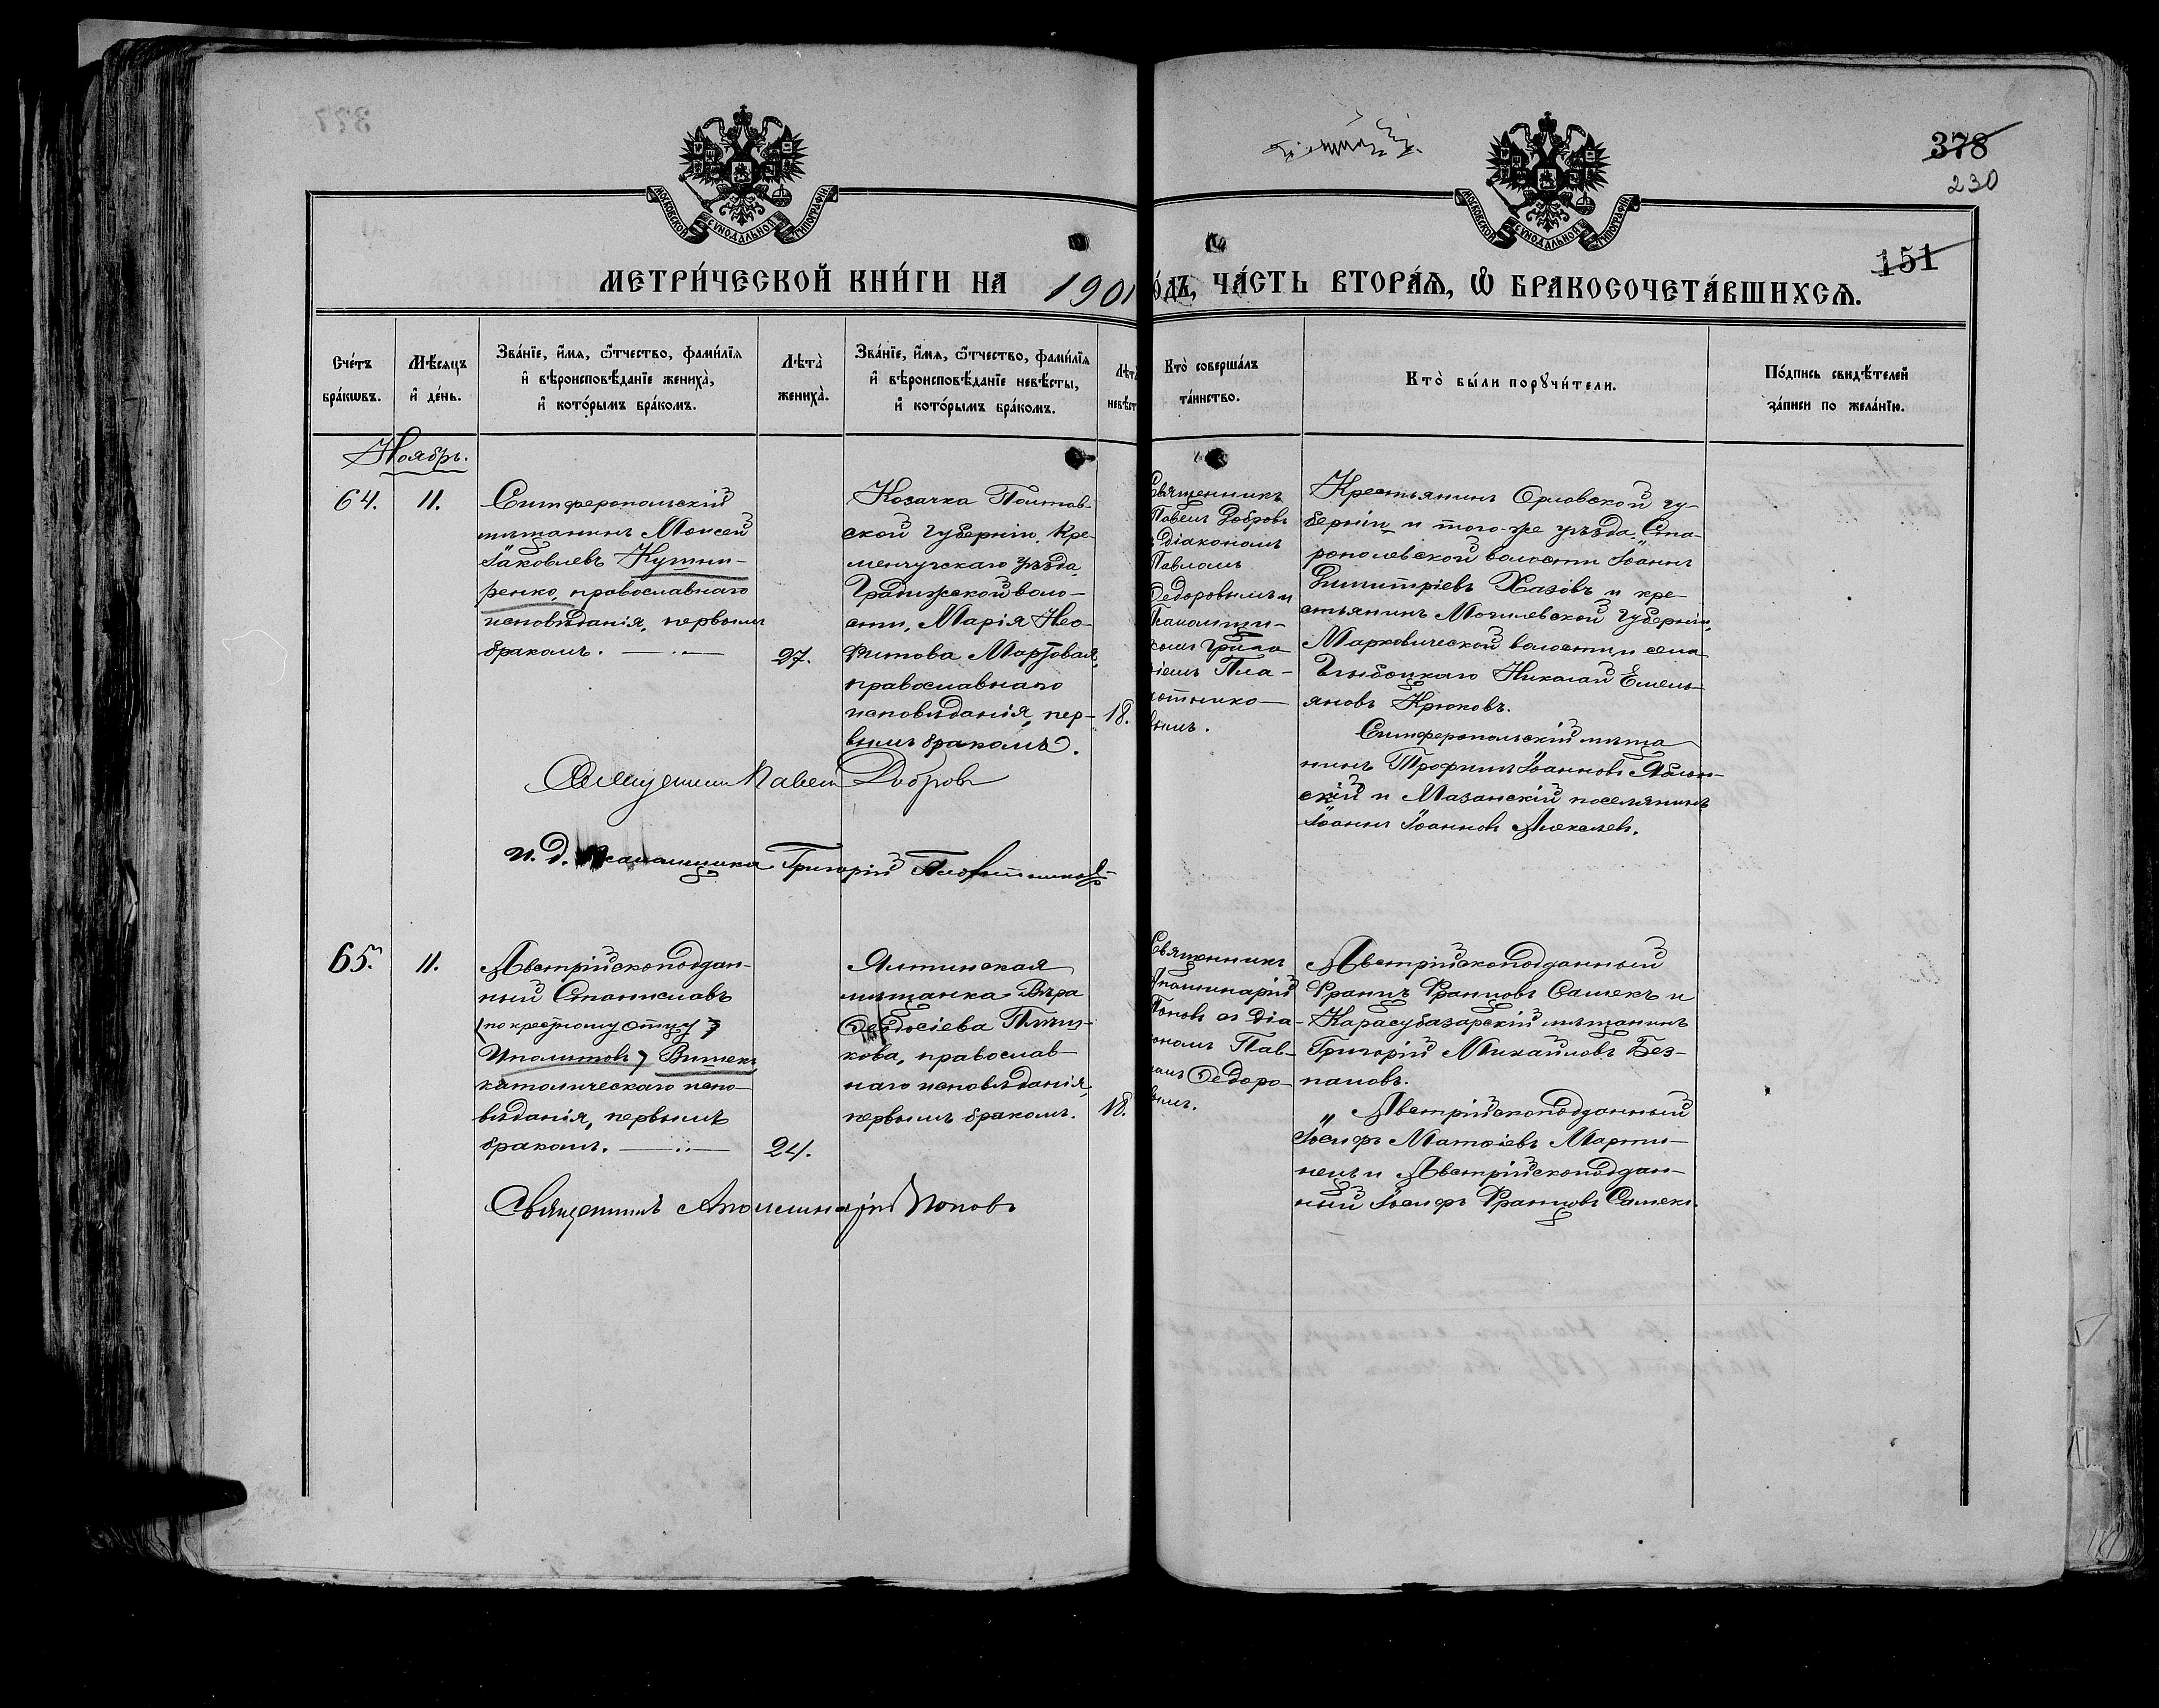 378
230
151
МОСКОВСКОЙ СУНОДАЛЬНОЙ ТИПОГРАФІИ
МОСКОВСКОЙ СУНОДАЛЬНОЙ ТИПОГРАФІИ
МЕТРИ́ЧЕСКОЙ КНИ́ГИ НА 1901
О́ДЪ, ЧА́СТЬ ВТОРА́Ѧ, Ѡ҆ БРАКОСОЧЕТА́ВШИХСѦ.
Сче́тъ
бра́кѡвъ.
Мѣ́сяцъ
и҆ де́нь.
Зва́нїе, и҆́мя, ѻ҆́тчество, фами́лїя
и҆ вѣроисповѣ́данїе жениха̀,
и҆ кото́рымъ бра́комъ.
Лѣта̀
жениха̀.
Зва́нїе, и҆́мя, ѻ҆́тчество, фами́лїя
и҆ вѣроисповѣ́данїе невѣ́сты,
и҆ кото́рымъ бра́комъ.
Лѣта
невѣст
Кто̀ соверша́лъ
та́инство.
Кто̀ бы́ли порꙋчи́тели.
По́дпись свидѣ́телей
за́писи по жела́нїю.
Ноябрь.
64.
11.
Симферопольскій
мѣщанинъ Моисей
Іаковлевъ Кушни-
ренко, православнаго
исповѣданія, первымъ
бракомъ.
27.
Козачка Полтав-
ской губерніи, Кре-
менчугскаго уѣзда,
Градижской воло-
сти, Марія Нео-
фитова Мартовая,
православнаго
исповѣданія, пер-
вымъ бракомъ.
18.
Священникъ
Павелъ Добровъ
діакономъ
Павломъ
Федоровымъ и
Псаломщи-
комъ Григо
ріемъ Пло-
отнико-
вымъ.
Крестьянинъ Орловской гу-
берніи и того-же уѣзда, Ста-
ропольевской волости Іоаннъ
Димитріевъ Хазовъ и кре-
стьянинъ Могилевской губерніи,
Марковической волости и села
Глыбоцкаго Николай Емель-
яновъ Крюковъ.
Симферопольскій мѣща
нинъ Трофимъ Іоанновъ Яблон-
скій и Мазанскій поселянинъ
Іоаннъ Іоанновъ Алекалевъ.
Священникъ Павелъ Добровъ
И. д. Псаломщика Григорій Плотниковъ
65.
11.
Австрійскоподдан-
ный Станиславъ
(по крестному отцу
Иполитовъ) Витекъ,
католическаго испо-
вѣданія, первымъ
бракомъ.
24.
Ялтинская
мѣщанка Вѣра
Феодосіева Птич-
кова, православ-
наго исповѣданія,
первымъ бракомъ.
18.
Священникъ
Аполлинарій
Поповъ съ діа-
кономъ Пав-
ломъ Федоро-
вымъ.
Австрійскоподданный
Францъ Францовъ Самекъ и
Карасубазарскій мѣщанинъ
Григорій Михайловъ Без-
паловъ.
„Австрійскоподданный
Іосифъ Матфіевъ Марти-
нецъ и Австрійскоподдан-
ный Іосифъ Францовъ Самекъ.
Священникъ Аполлинарій Поповъ